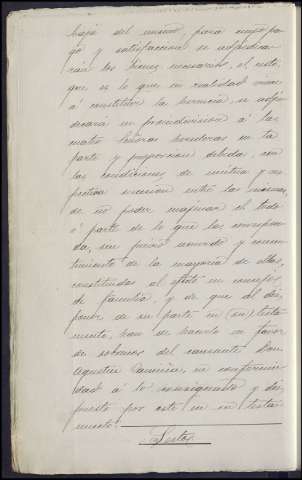 baja del mismo, para cuyo pa-
go y satisfaccion se adjudica-
rán los bienes necesarios, el resto
que es lo que en realidad viene
á constituir la herencia, se adju-
dicará en proindivision á las
cuatro Señoras herederas en la
parte y proporcion debida, con
las condiciones de mutua y res-
pectiva sucesion entre las mismas,
de no poder enajenar el todo
ó parte de lo que les correspon-
da, sin previo acuerdo y consen-
timiento de la mayoria de ellas,
constituidas al efecto en consejo
de familia, y de que al dis-
poner de su parte en (su) testa-
mento, han de hacerlo en favor
de sobrinos del causante Don
Agustin en conformi-
dad á lo consignado y dis-
puesto por este en su testa-
mento.